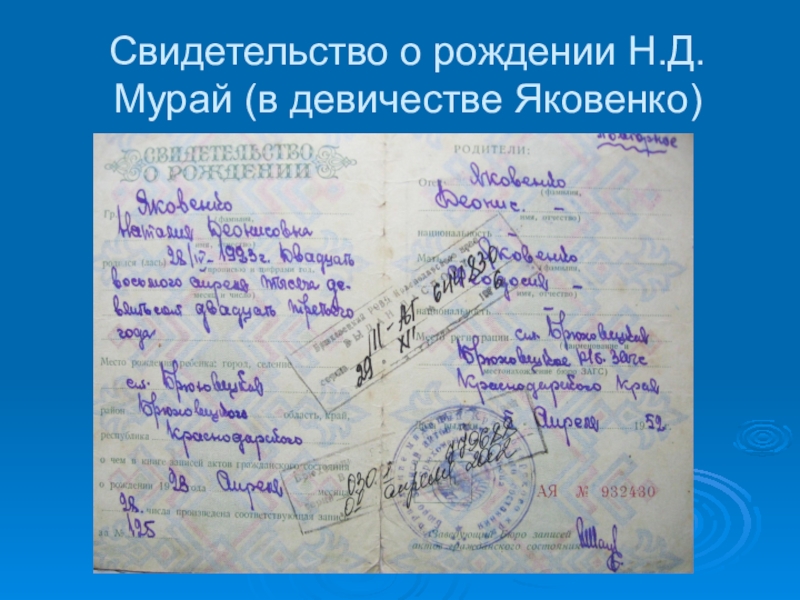 Свидетельство о рождении Н.Д.
Мурай (в девичестве Яковенко)
СВИДЕТЕЛЬСТВО
О РОЖДЕНИИ
Гр. Яковенко
(фамилия,
Наталия Деонисовна
имя, отчество)
родился (лась) 28/IV-1923г. Двадцать
(прописью и цифрами год,
восьмого апреля тысяча де-
месяц и число)
вятьсот двадцать третьего
года
Место рождения ребенка: город, селение
ст. Брюховецкая
район Брюховецкого область, край,
республика Краснодарского
о чем в книге записей актов гражданского состояния
о рождении 1923 года Апреля месяца
28. числа произведена соответствующая запись
за № 125
повторное
РОДИТЕЛИ:
Отец Яковенко
(фамилия,
Деонис. –
имя, отчество)
национальность –
Мать Яковенко
(фамилия,
имя, отчество)
национальность –
Место регистрации ст. Брюховецкая
(наименование и
Брюховецкое Р/б. ЗАГС
местонахождение бюро ЗАГС)
Краснодарского Края
5 Апреля 1952.
АЯ № 932430
Заведующий бюро записей
актов гражданского состояния
29 III-АГ 644830
XII